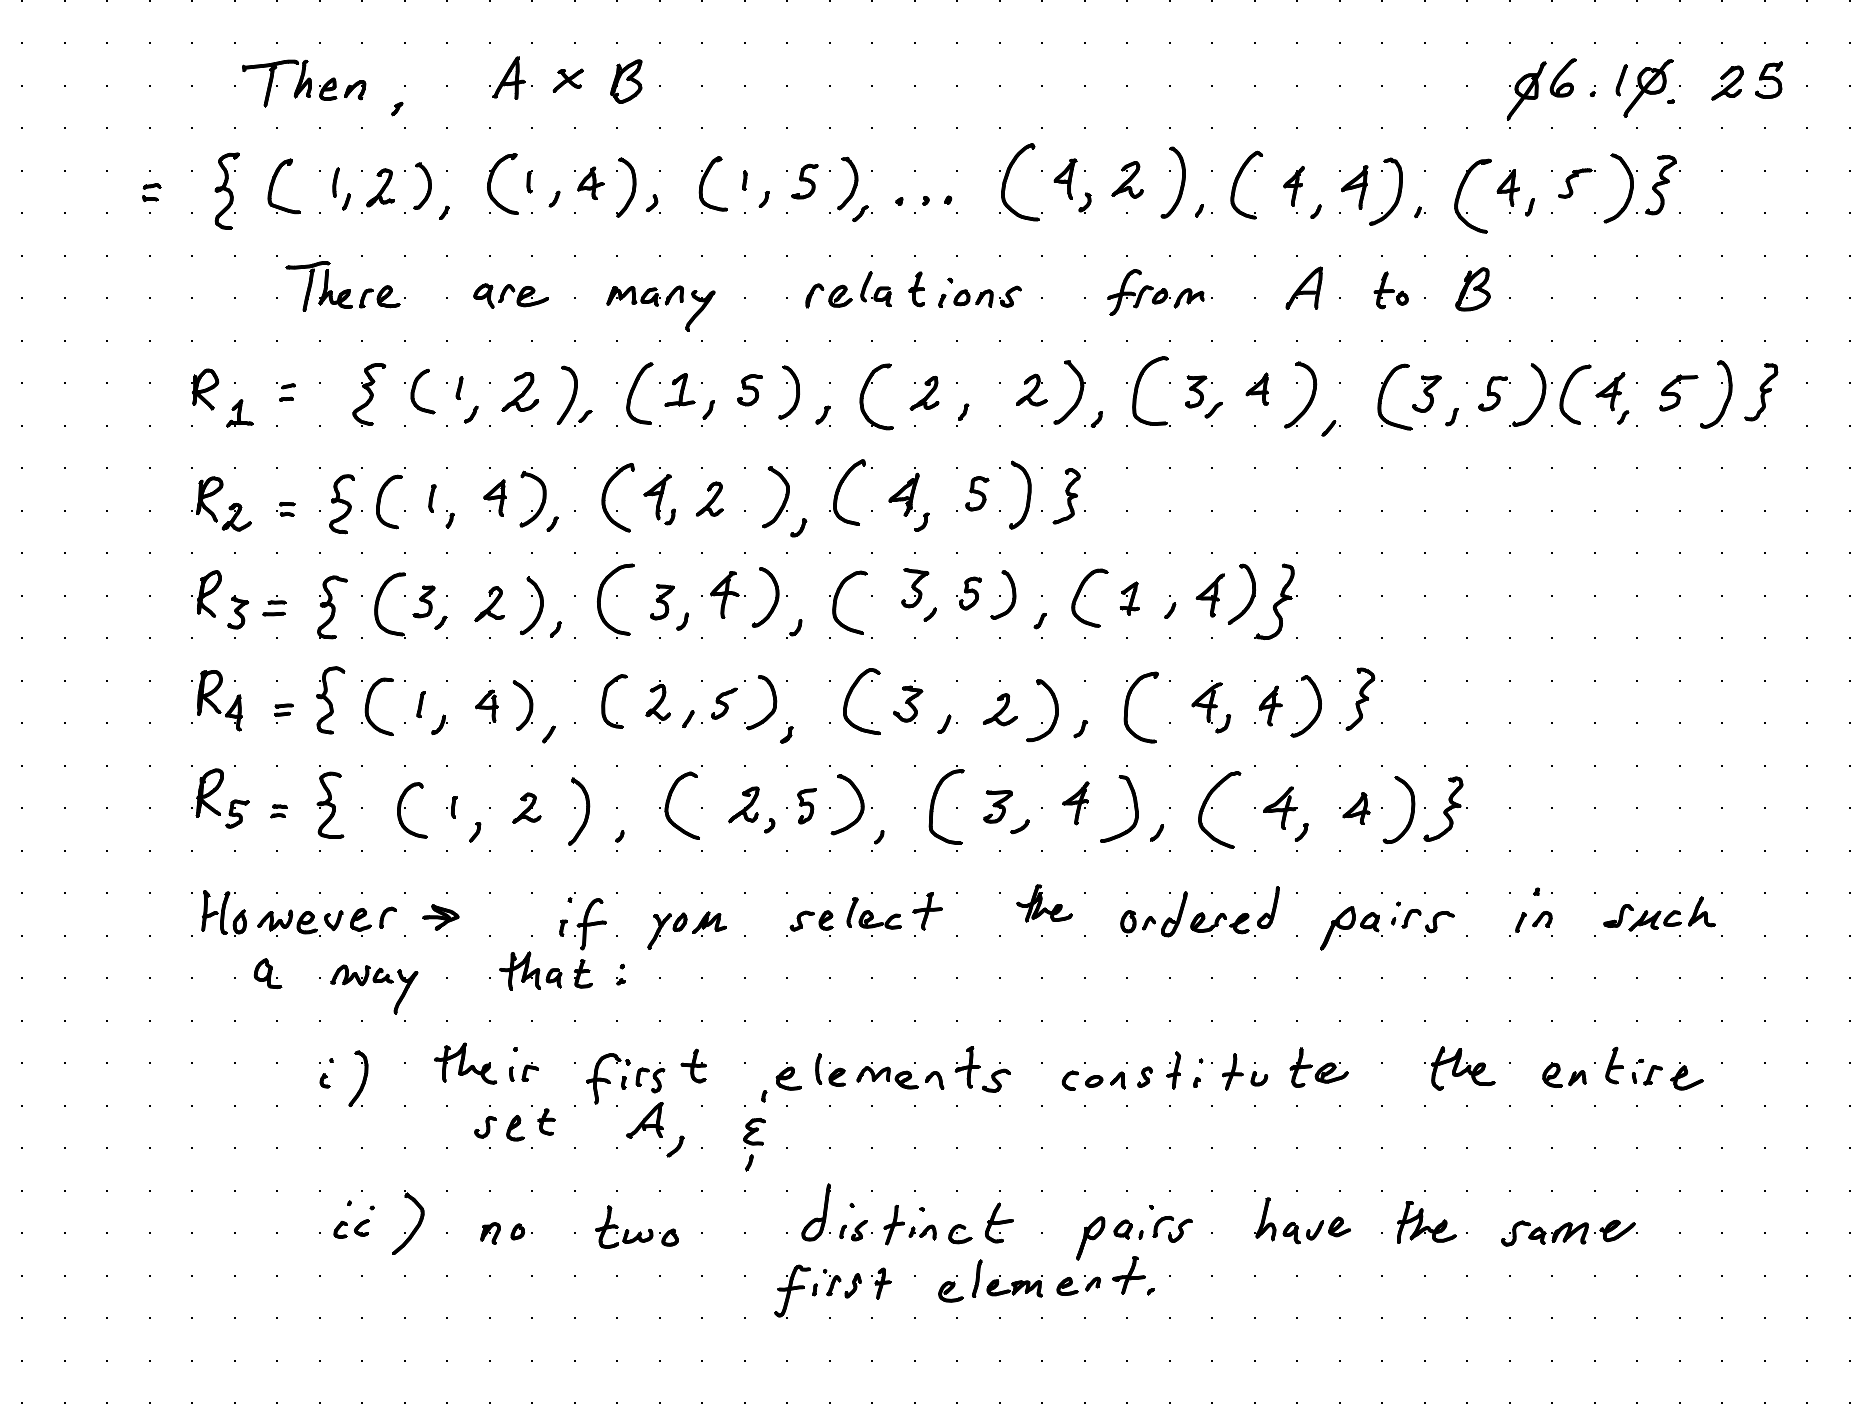 Then, A × B 06.10.25
= { (1,2), (1,4), (1,5), ... (4,2), (4,4), (4,5) }
There are many relations from A to B
R₁ = { (1,2), (1,5), (2, 2), (3,4), (3,5)(4,5) }
R₂ = { (1,4), (4,2), (4,5) }
R₃ = { (3,2), (3,4), (3,5), (1,4) }
R₄ = { (1,4), (2,5), (3,2), (4,4) }
R₅ = { (1,2), (2,5), (3,4), (4,4) }
However → if you select the ordered pairs in such
a way that:
i) their first elements constitute the entire
set A, &
ii) no two distinct pairs have the same
first element.